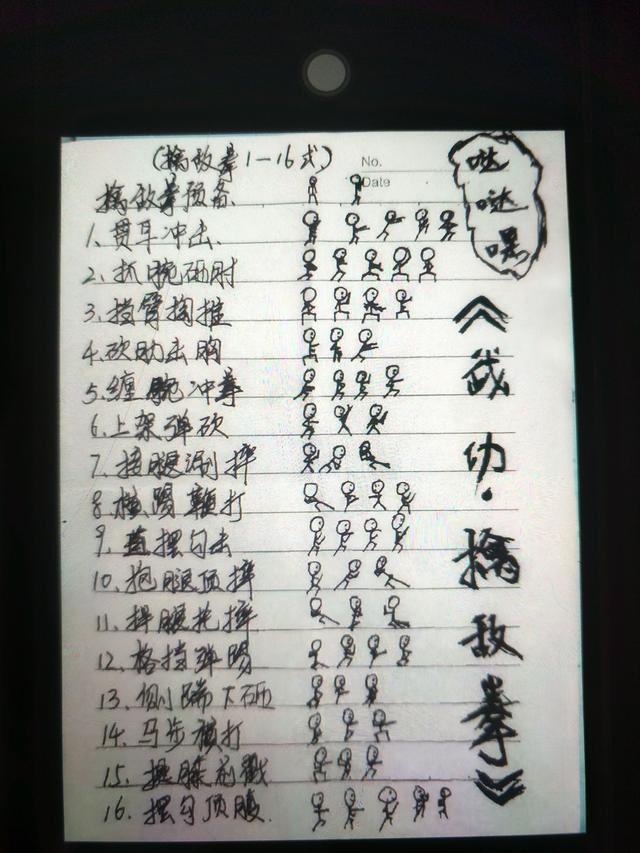 (擒敌拳1-16式)
No.
Date
擒敌拳预备
1、贯耳冲击.
2、抓腕砸肘
3、挡臂掏推
4、砍肋击胸
5、缠腕冲拳
6、上架弹砍
7、接腿涮摔
8、横踢鞭打
9、直摆勾击
10、抱腿顶摔
11、绊腿
12、格挡弹踢
13、侧踹下砸
14、马步横打
15、前戳
16、摆勾顶膝.
哒
哒
嘿
《武功·擒敌拳》